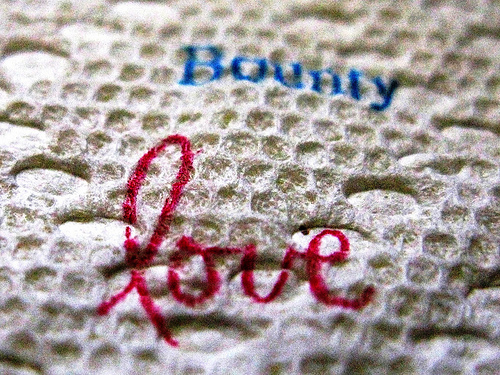 Bounty
love